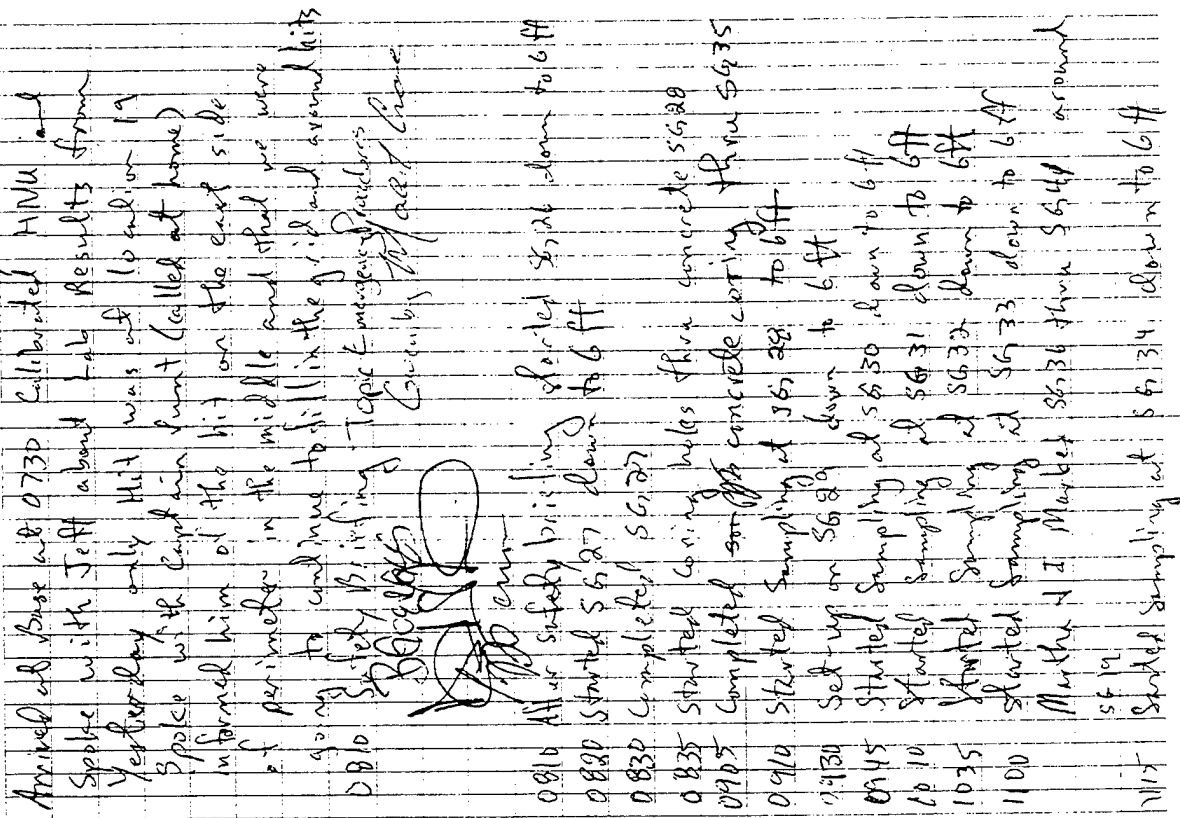 Arrived at Base at 0730 Calibrated HNU and
Spoke with Jeff about Lab Results from
Yesterday only Hit was at location 19
Spoke with Captain (called at home)
informed him of the hit on the east side
of perimeter in the middle and that we were
going to continue to fill in the grid and around hits
0810 Safety Briefing Topic Emergency Procedures
Given by
0810 After safety briefing started SG 26 down to 6 ft
0820 Started SG 27 down to 6 ft
0830 Completed SG 27
0835 Started coring holes thru concrete SG 28
0905 Completed concrete coring thru SG 35
0910 Started Sampling at SG 28 to 6 ft
0930 Set-up on SG 29 down to 6 ft
0945 Started Sampling at SG 30 down to 6 ft
1010 Started Sampling at SG 31 down to 6 ft
1035 Started Sampling at SG 32 down to 6 ft
1100 Started Sampling at SG 33 down to 6 ft
Martha & I Marked SG 36 thru SG 41 around
SG 19
1115 Started Sampling at SG 34 down to 6 ft